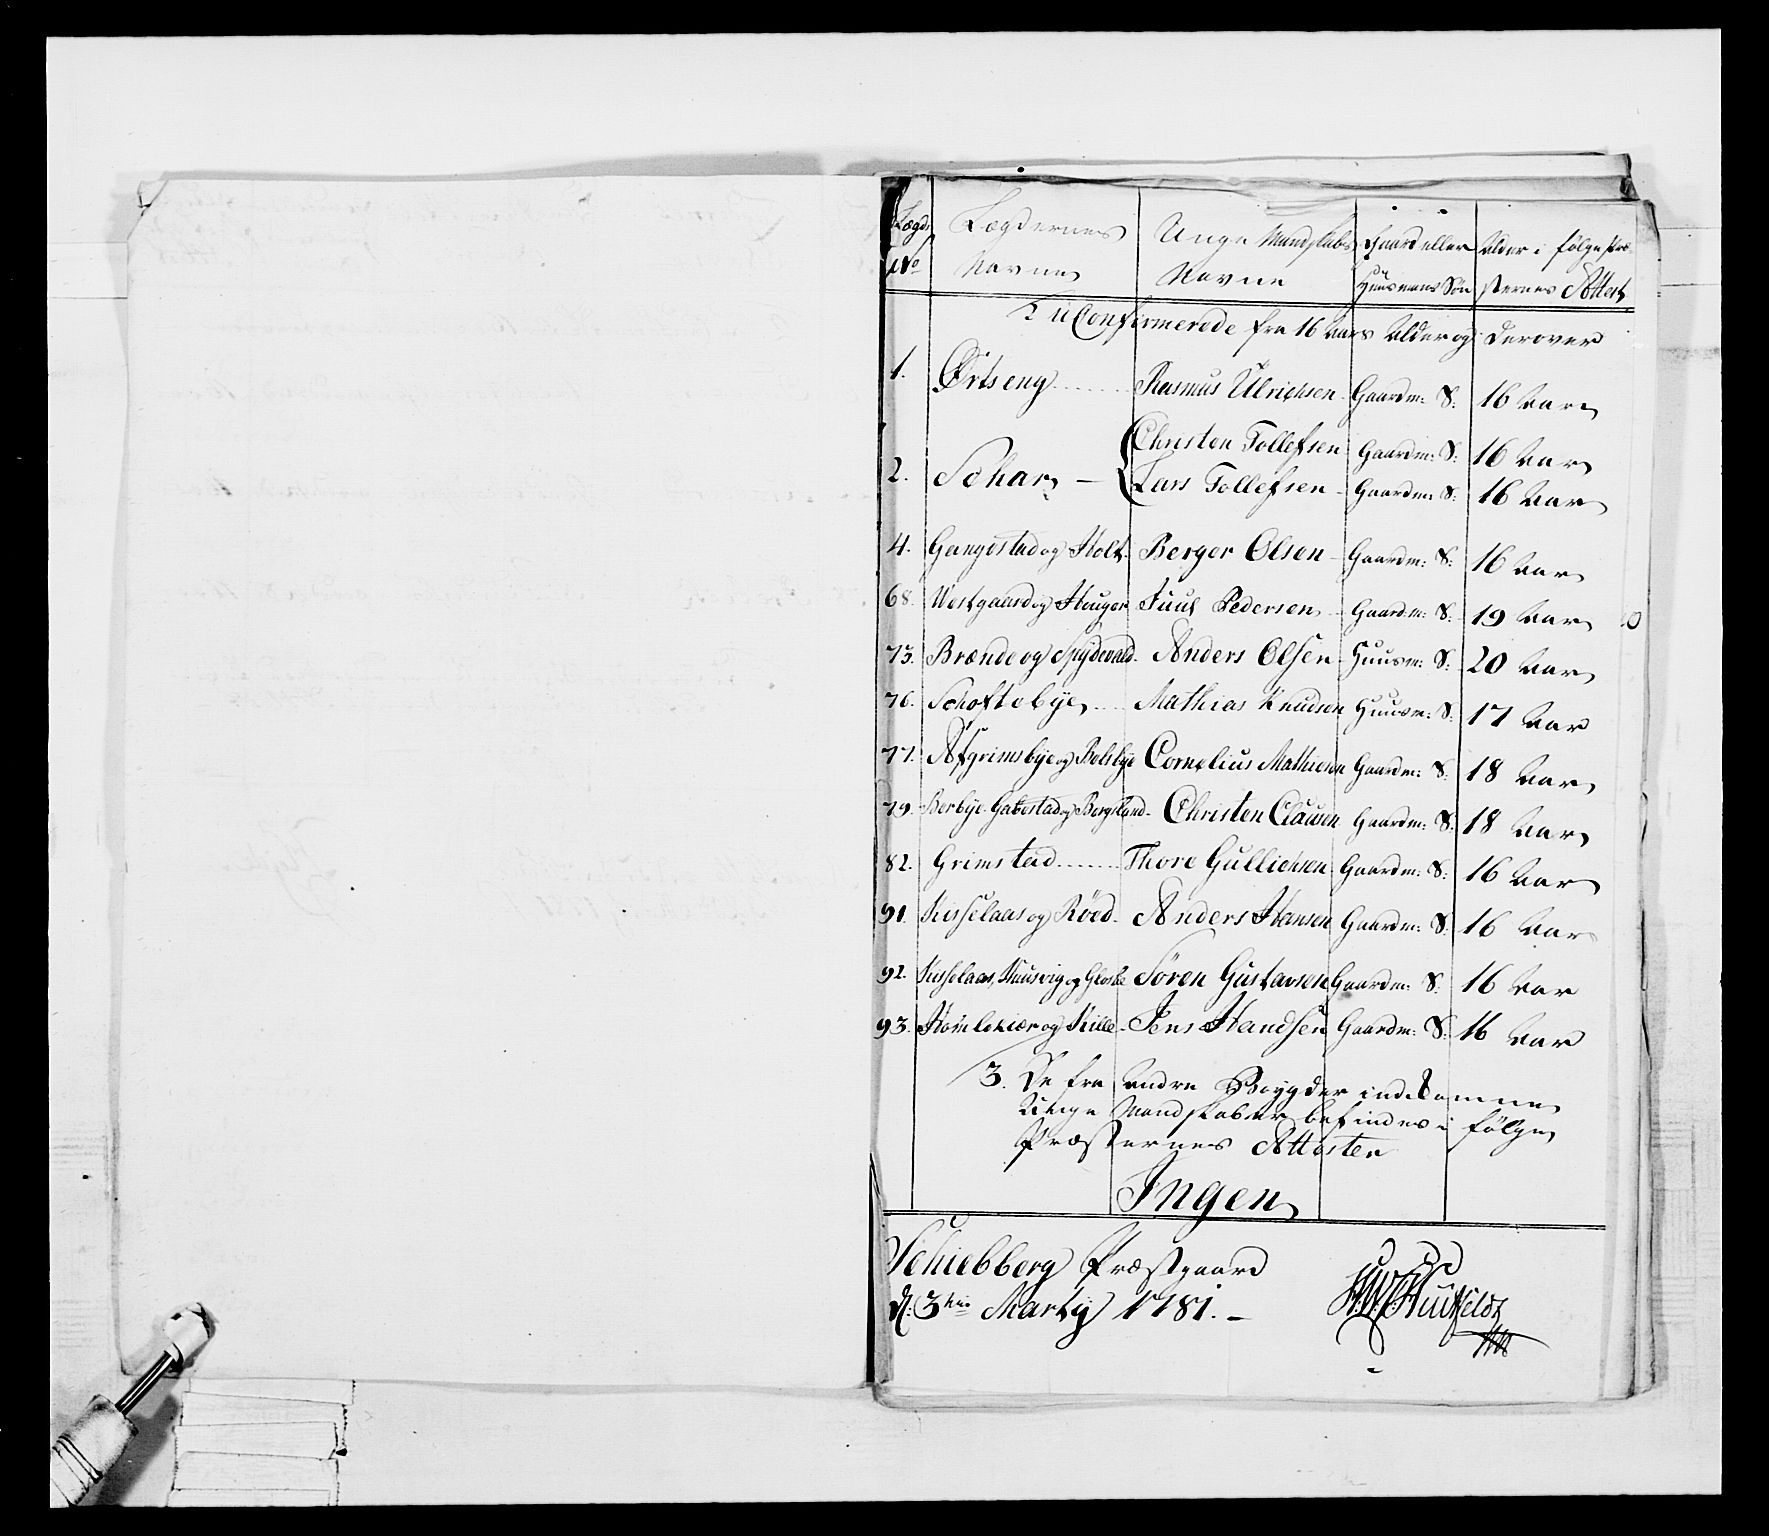 Lægd. No | Lægdernes Navne | Unge Mandskabs Navne | Gaard eller Huusmans Søn | Alder i følge Præsternes Attest
2 uConfirmerede fra 16 Aars Alder og derover
1. Ørtseng Rasmus Ulrichsen Gaardm: S: 16 Aar
Christen Tollefsen Gaardm: S: 16 Aar
2. Schar Lars Tollefsen Gaardm: S: 16 Aar
4. Gangestad og Holt Berger Olsen Gaardm: S: 16 Aar
68. Westgaard og Houger Juul Pedersen Gaardm: S: 19 Aar
73. Brænde og Spydevald Anders Olsen Huusm: S: 20 Aar
76. Schoftebye Mathias Knudsen Huusm: S: 17 Aar
77. Asgrimsbye og Bolsbye Cornelius Mathiesen Gaardm: S: 18 Aar
79. Berbye Gabestad og Bergsland Christen Clausen Gaardm: S: 18 Aar
82. Grimstad Thore Gullichsen Gaardm: S: 16 Aar
91. Kisselaas og Röed Anders Hansen Gaardm: S: 16 Aar
92. Kisselaas, Huusvig og Sören Gustavsen Gaardm: S: 16 Aar
93. Homlekiær og Kille Jens Handsen Gaardm: S: 16 Aar
3. De fra andre Bøygder indkomne
Unge Mandskaber befindes i følge
Præsternes Attester
Ingen
Schiebberg Præstgaard
d: 3die Marty 1781.
Huitfeldt